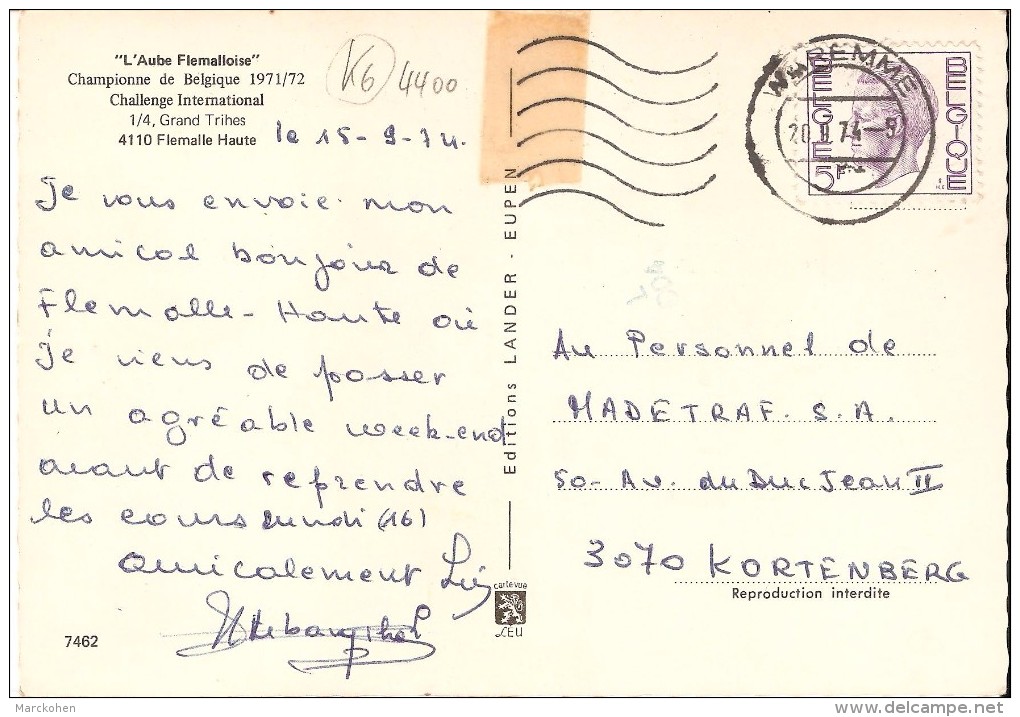 "L'Aube Flemalloise"
Championne de Belgique 1971/72
Challenge International
1/4, Grand Trihes
4110 Flemalle Haute
K6 4400
le 15-9-74.
Je vous envoie mon
amical bonjour de
Flemalle-Haute où
je viens de passer
un agréable week-end
avant de reprendre
les cours lundi (16)
amicalement
7462
Editions LANDER - EUPEN
carte vue
LEU
WAREMME
20 74-9
BELGIE 5F
BELGIQUE
Au Personnel de
MADETRAF. S.A.
50- Av. du Duc Jean II
3070 KORTENBERG
Reproduction interdite
Marckohen